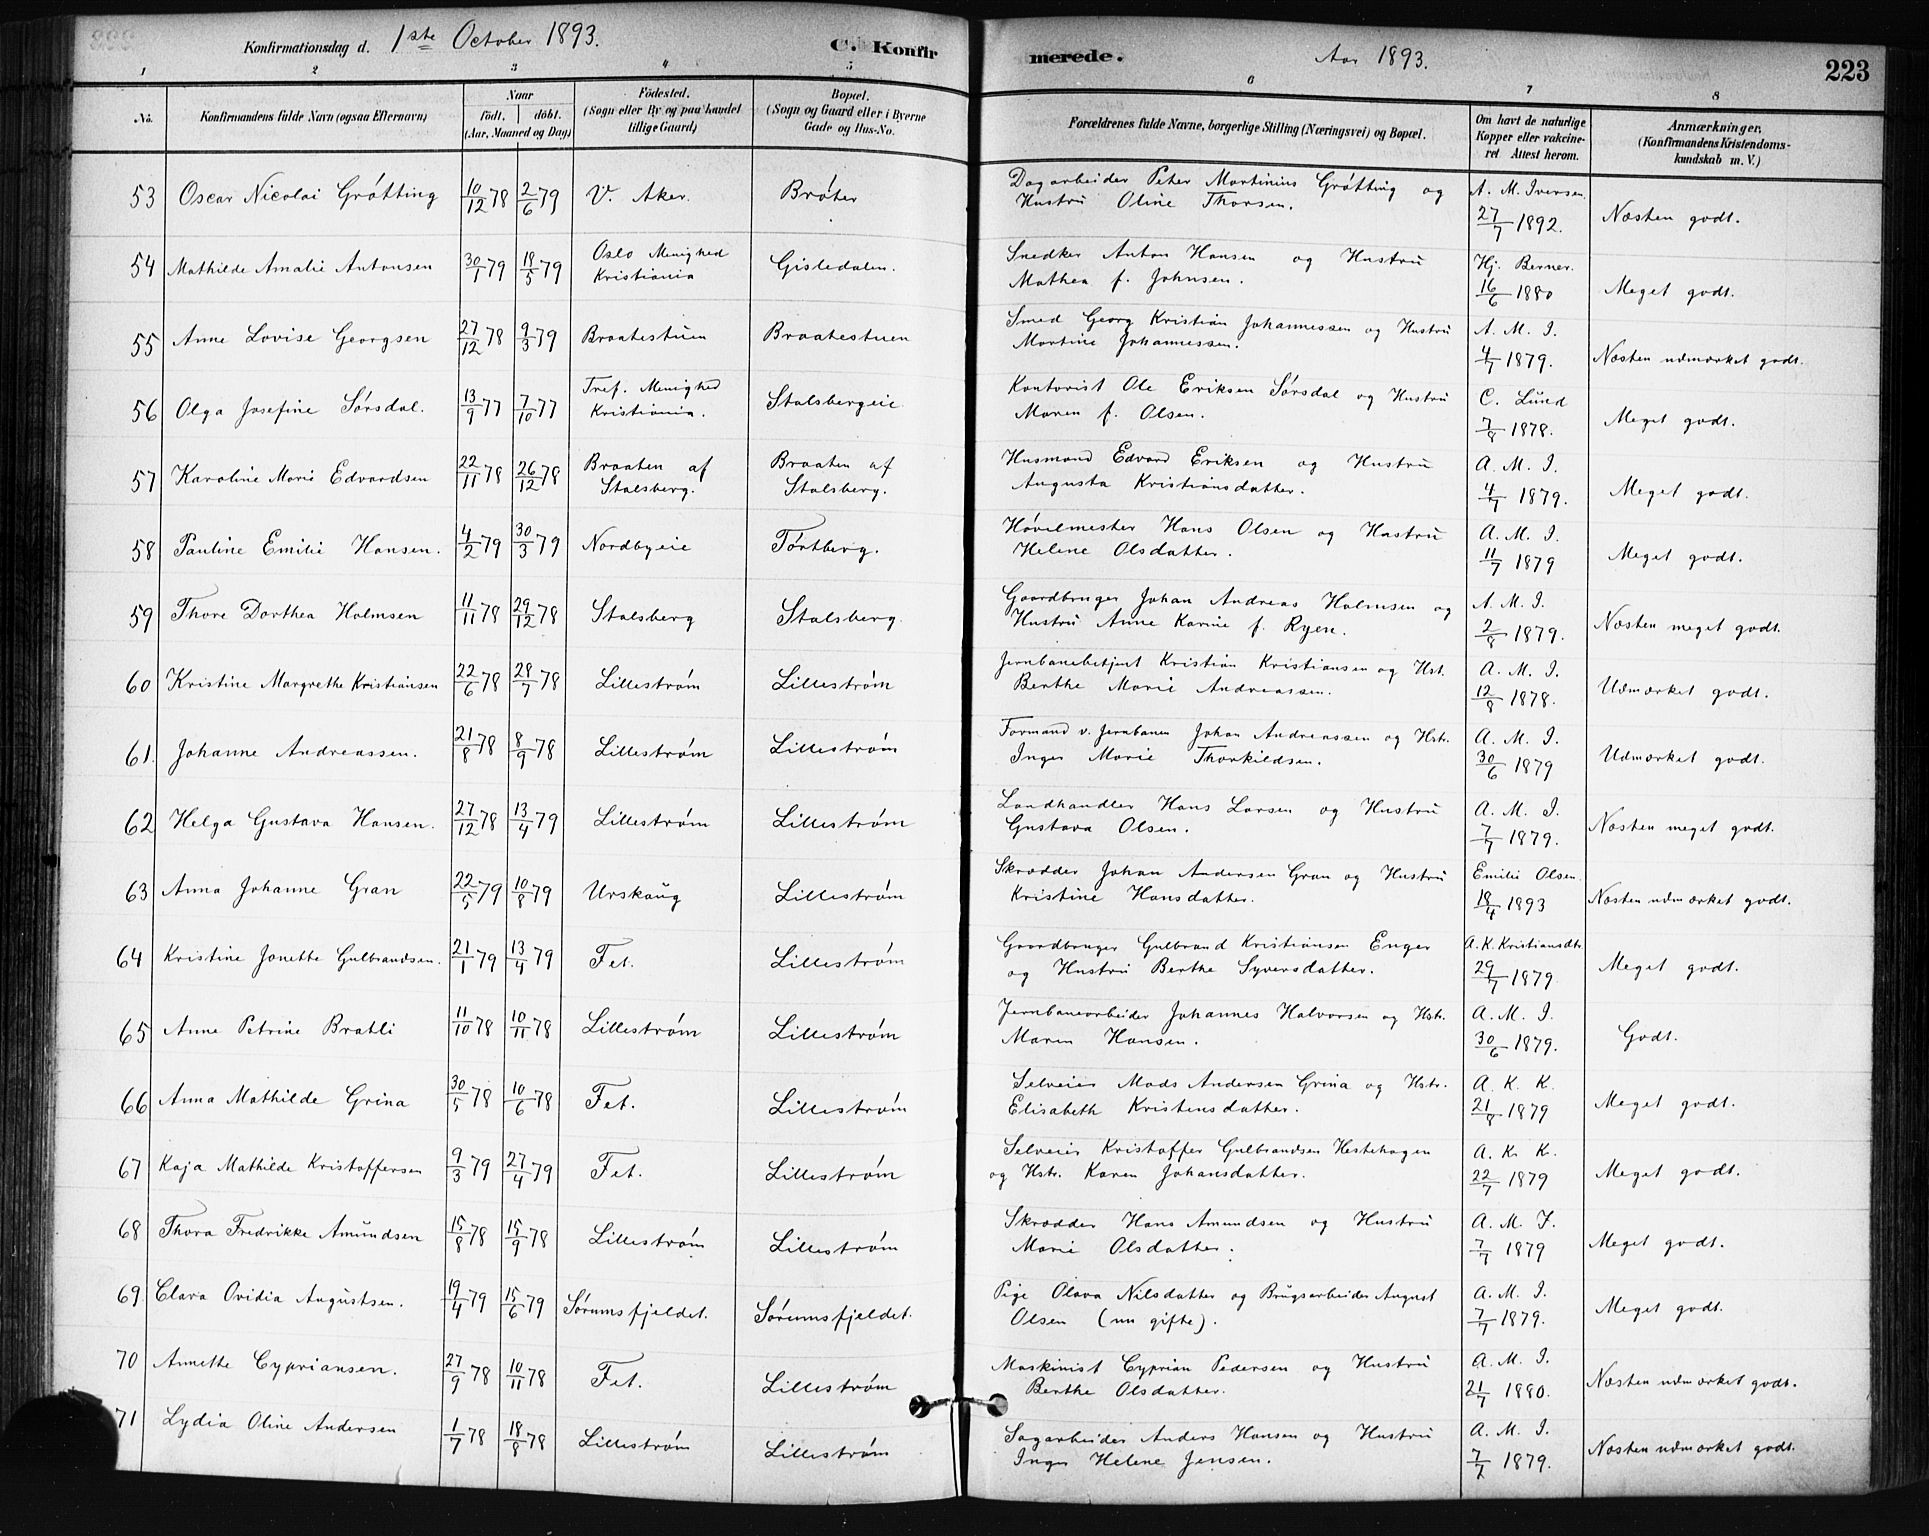 Konfirmationsdag d. 1ste October 1893. C. Konfirmerede. Aar 1893. 223
1 2 3 4 5 6 7 8
No. Konfirmandens fulde Navn (ogsaa Efternavn) Naar födt. döbt. (Aar, Maaned og Dag) Födested. (Sogn eller By og paa Landet tillige Gaard) Bopæl. (Sogn og Gaard eller i Byerne Gade og Hus-No. Forældrenes fulde Navne, borgerlige Stilling (Næringsvei) og Bopæl. Om havt de naturlige Kopper eller vakcineret Attest herom. Anmærkninger, (Konfirmandens Kristendomskundskab m. V.)
53 Oscar Nicolai Gråtting 10/12 78 2/6 79 V. Aker. Bråter Dagarbeider Peter Martinius Gråtting og Hustru Oline Thorsen. A. M. Iversen. 27/7 1892. Næsten godt.
54 Mathilde Amalie Antonsen 30/1 79 18/5 79 Oslo Menighed Kristiania Gisledalen. Snedker Anton Hansen og Hustru Mathea f. Johnsen. Hj. Berner. 16/6 1880 Meget godt.
55 Anne Lovise Georgsen 27/12 78 9/3 79 Braatestuen Braatestuen Smed Georg Kristian Johannessen og Hustru Martine Johannessen. A. M. I. 4/7 1879. Næsten udmærket godt.
56 Olga Josefine Sørsdal. 13/9 77 7/10 77 Tref. Menighed Kristiania. Stalsbergeie Kontorist Ole Eriksen Sørsdal og Hustru Maren f. Olsen. C. Lund 7/8 1878. Meget godt.
57 Karoline Marie Edvardsen 22/11 78 26/12 78 Braaten af Stalsberg. Braaten af Stalsberg. Husmand Edvard Eriksen og Hustru Augusta Kristiansdatter. A. M. I. 4/7 1879. Meget godt.
58 Pauline Emilie Hansen. 4/2 79 30/3 79 Nordbyeie Tørtberg. Høvelmester Hans Olsen og Hustru Helene Olsdatter. A. M. I. 11/7 1879 Meget godt.
59 Thore Dorthea Holmsen 11/11 78 29/12 78 Stalsberg Stalsberg. Gaardbruger Johan Andreas Holmsen og Hustru Anne Karine f. Ryen. A. M. I. 2/8 1879. Næsten meget godt.
60 Kristine Margrethe Kristiansen 22/6 78 28/7 78 Lillestrøm Lillestrøm Jernbanebetjent Kristian Kristiansen og Hst. Berthe Marie Andreassen. A. M. I. 12/8 1878. Udmærket godt.
61. Johanne Andreassen. 21/8 78 8/9 78 Lillestrøm Lillestrøm Formand v. Jernbanen Johan Andreassen og Hstr. Inger Marie Thorkildsen. A. M. I. 30/6 1879 Udmærket godt.
62 Helga Gustava Hansen. 27/12 78 13/4 79 Lillestrøm Lillestrøm Landhandler Hans Larsen og Hustru Gustava Olsen. A. M. I. 7/7 1879. Næsten meget godt.
63 Anna Johanne Gran 22/5 79 10/8 79 Urskaug Lillestrøm Skrædder Johan Andersen Gran og Hustru Kristine Hansdatter. Emilie Olsen. 18/4 1893 Næsten udmærket godt.
64 Kristine Jonette Gulbrandsen. 21/1 79 13/4 79 Fet. Lillestrøm Gaardbruger Gulbrand Kristiansen Enger og Hustru Berthe Syversdatter. A. K. Kristiansdtr. 29/7 1879. Meget godt.
65 Anne Petrine Bratli 11/10 78 10/11 78 Lillestrøm Lillestrøm Jernbanearbeider Johannes Halvorsen og Hstr. Maren Hansen. A. M. I. 30/6 1879. Godt.
66 Anna Mathilde Grina 30/5 78 10/6 78 Fet. Lillestrøm Selveier Mads Andersen Grina og Hstr. Elisabeth Kristensdatter. A. K. K. 21/8 1879 Meget godt.
67 Kaja Mathilde Kristoffersen 9/3 79 27/4 79 Fet. Lillestrøm Selveier Kristoffer Gulbrandsen Hestehagen og Hstr. Karen Johansdatter. A. K. K. 22/7 1879 Meget godt.
68 Thora Fredrikke Amundsen 15/8 78 15/9 78 Lillestrøm Lillestrøm Skrædder Hans Amundsen og Hustru Marie Olsdatter. A. M. I. 7/7 1879 Meget godt.
69 Clara Ovidia Augustsen. 19/4 79 15/6 79 Sørumsfjeldet. Sørumsfjeldet. Pige Olava Nilsdatter og Brugsarbeider August Olsen (nu gifte). A. M. I. 7/7 1879. Meget godt.
70 Annette Cypriansen. 27/9 78 10/11 78 Fet. Lillestrøm Maskinist Cyprian Pedersen og Hustru Berthe Olsdatter. A. M. I. 21/7 1880. Næsten udmærket godt.
71 Lydia Oline Andersen 1/7 78 18/8 78 Lillestrøm Lillestrøm Sagarbeider Anders Hansen og Hustru Inger Helene Jensen. A. M. I. 7/7 1879. Næsten udmærket godt.